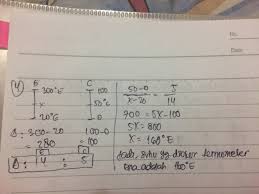 No.
Date
4
E C
300°E 100
x 50°C
20°E 0
Δ: 300-20 100-0
= 280 = 100
Δ: 14 : 5
50-0 / x-20 = 5 / 14
700 = 5x-100
5x = 800
x = 160°E
Jadi, suhu yg diukur termometer
E adalah 160°E